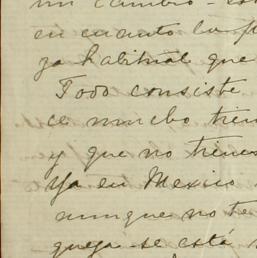 un cambio - es
en cuanto lo f
za habitual que
Todo consiste
ce mucho tiem
y que no tienes
Ya en Mexico
aunque no te
queja - se está